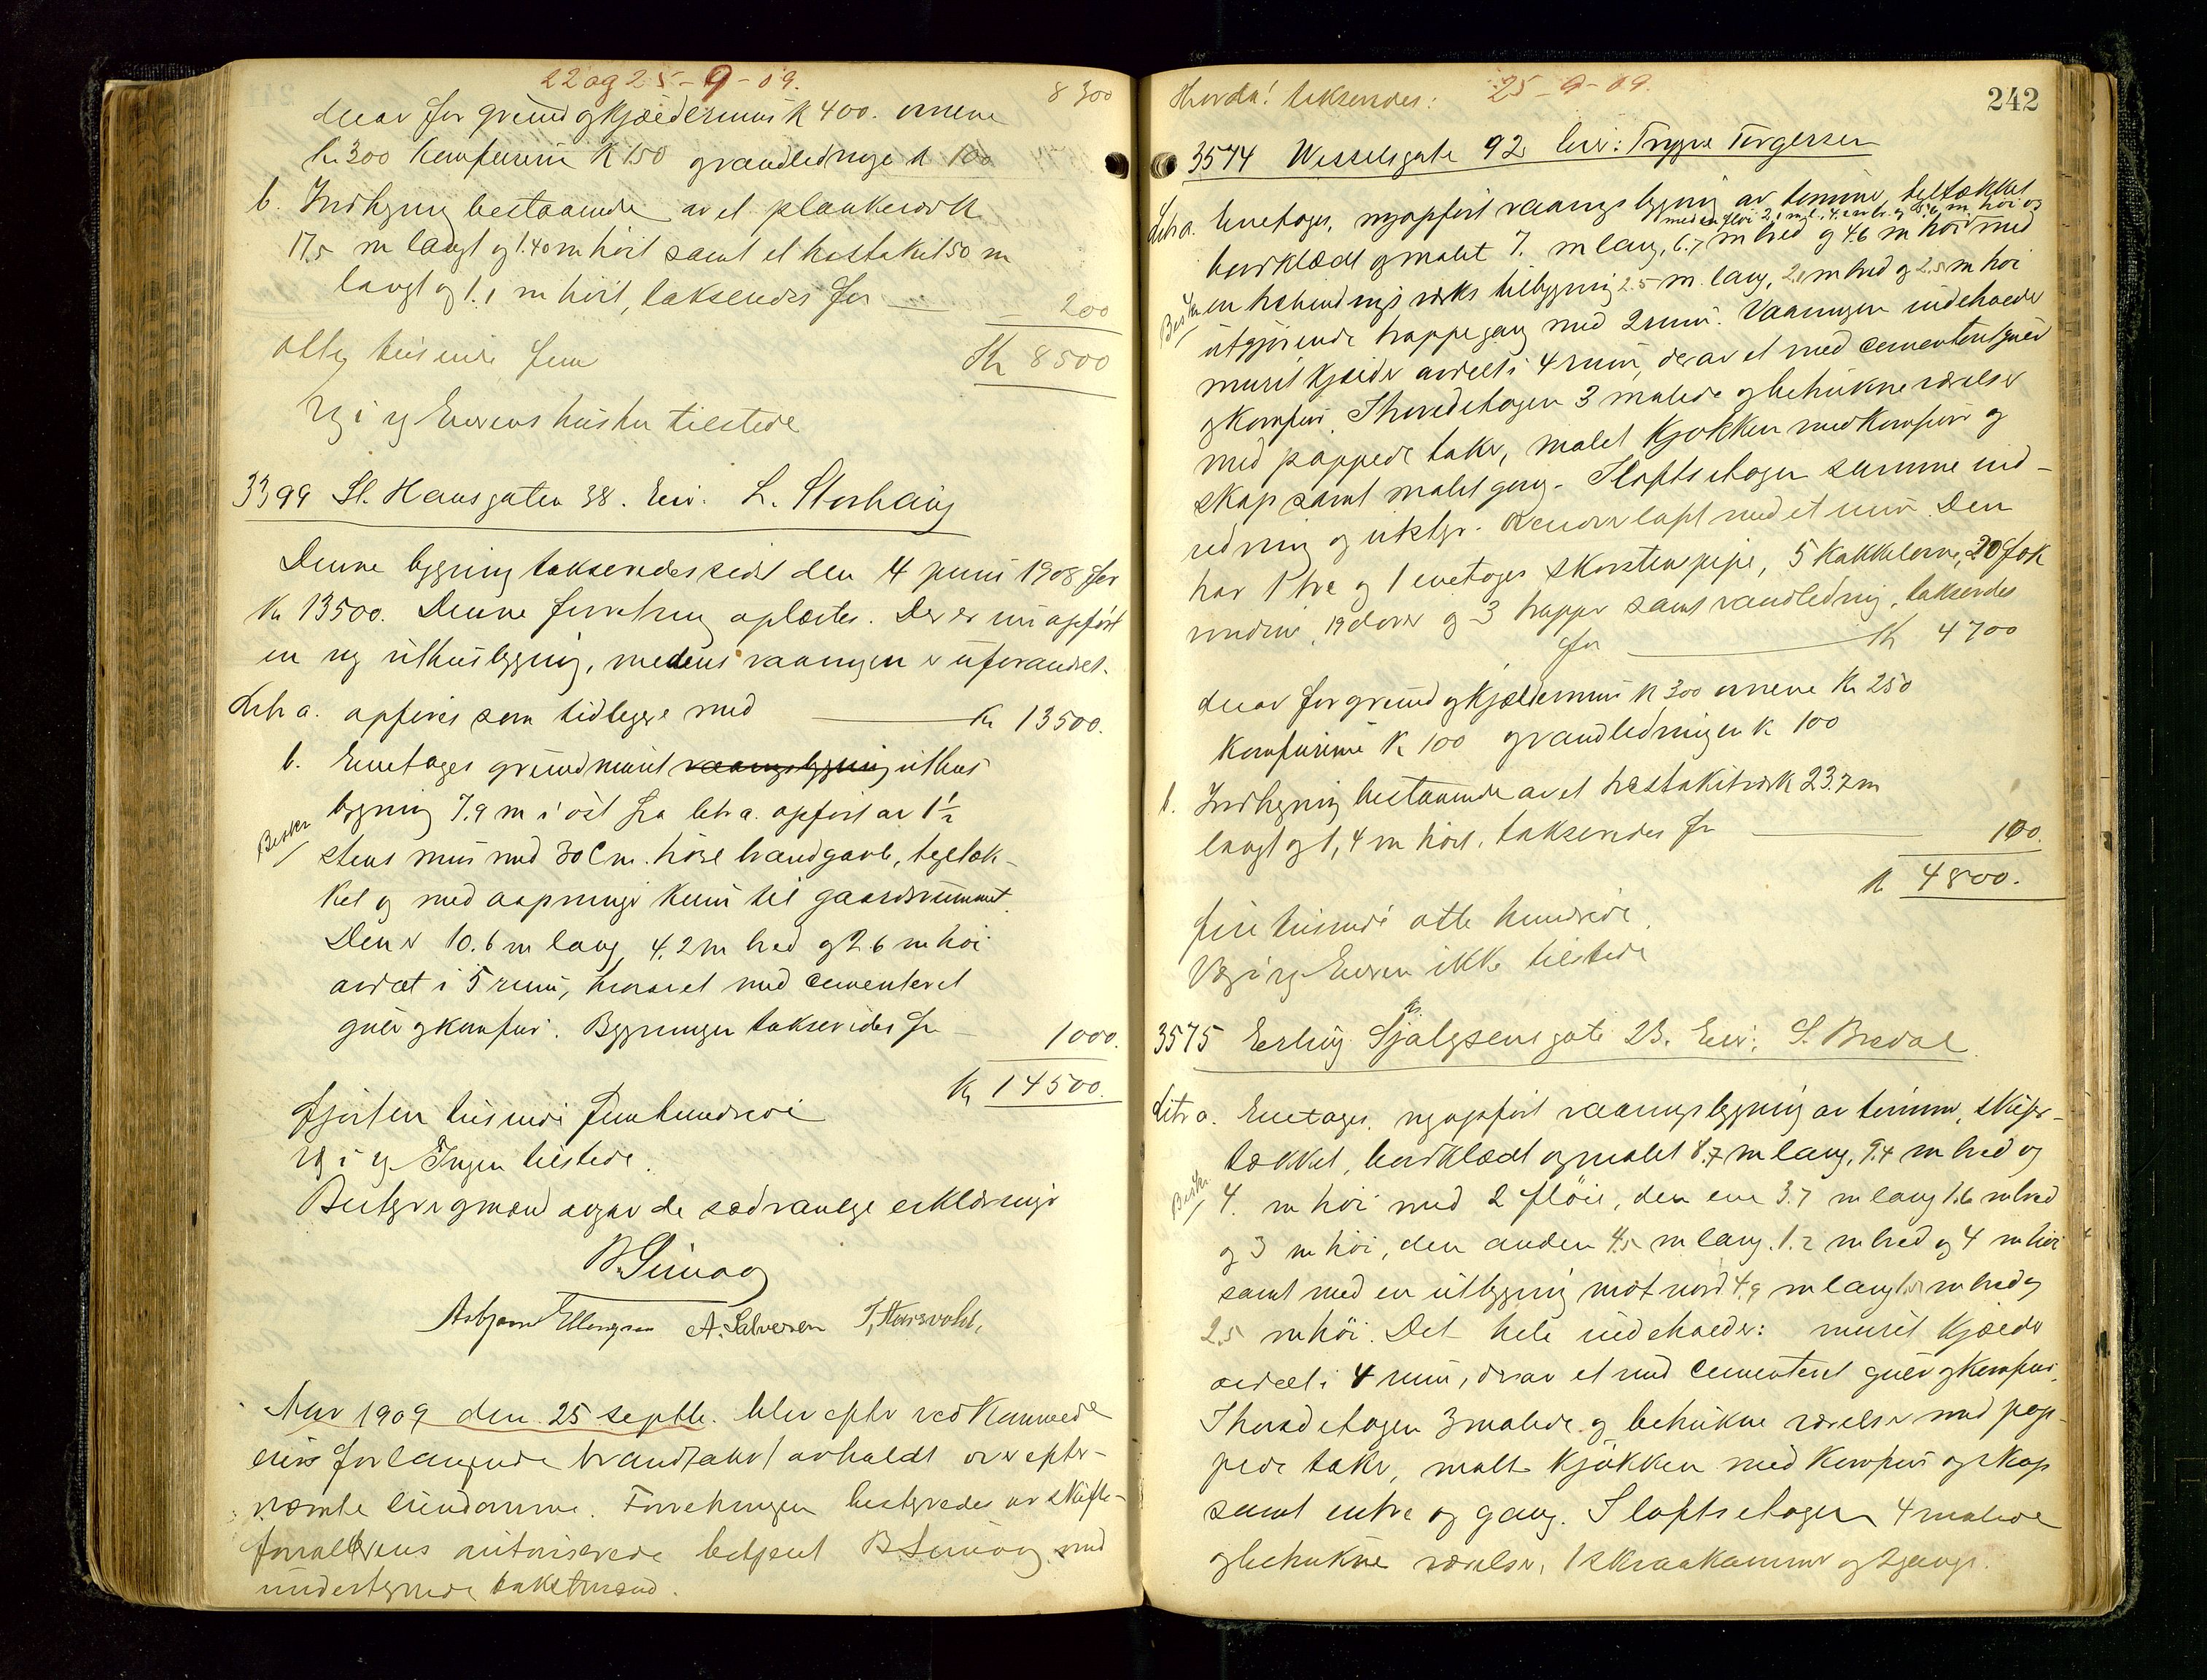 22 og 25-9-09.
8300
derav for grund og kjældermur k 400. ovnene
kr 300 komfurene K 150 og vandledninge k 100
b. Indhegning bestaaende av et plankeværk
17,5 m langt og 1.40 m höit samt et stakit 50 m
langt og 1.1 m höit, takseredes for — 200
otte tusinde fem Kr 8500
Eierens hustru tilstede
3399 St. Hansgaten 38. Eier: L. Storhaug
Denne bygning takseredes sidst den 4 juni 1908 for
Kr 13500. Denne forretning oplæstes. Der er nu opfört
en ny uthusbygning, medens vaaningen er uforandret.
Litr a. opföres som tidligere med — Kr 13500.
b. Enetages grundmuret vaaningsbygning uthus
bygning 7.9 m i öst fra litr a. opfört av 1½
Beskr
stens mur med 30 Cm. höie brandgavle, tegltæk-
ket og med aapninger kun til gaardsrummet.
Den er 10.6 m lang, 4.2 m bred og 2.6 m höi
avdelt i 5 rum, hvorav et med cementeret
grue og komfur. Bygningen takseredes for — 1000.
Kr 14500.
fjorten tusinde femhundrede
Ingen tilstede.
Bestyrer og mænd avgav de sædvanlige erklæringer
B. Sunog
Asbjørn Ellingsen A. Salvesen T. Haarsvold,
Aar 1909 den 25 septbr. blev efter vedkommende
eiers forlangende brandtakst avholdt over efter-
nævnte eiendomme. Forretningen bestyredes av skifte-
forvalterens autoriserede betjent B Sunog med
undertegnede takstmænd.
Hvorda! takseredes: 25-9-09.
242
3574 Wesselsgate 92 Eier: Trygve Torgersen
Litr a. Enetages, nyopfört vaaningsbygning av tömmer, teltækket
med en flöi 2,1 m l., 4.2 m br. og 3.6 m. höi og
bordklædt og malet 7. m lang, 6.7 m bred og 4.6 m höi med
Beskr
en bebindingsverks tilbygning 2.5 m. lang, 2.1 m bred og 2.5 m höi
utgjörende trappegang med 2 rum. Vaaningen indeholder
muret kjælder avdelt i 4 rum, derav et med cementeret grue
og komfur. I hovedetagen 3 malede og betrukne værelser
med pappede taker, malet kjökken med komfur og
skap samt malet gang. I loftsetagen samme ind-
redning og utstyr. Derover loft med et rum. Den
har 1 tre og 1 enetages skorstenspipe, 5 kakkelovne, 20 fok
vinduer, 19 dörer og 3 trapper samt vandledning, takseredes
for — Kr 4700
derav for grund og kjældermur k 300 ovnene Kr 250
komfurene K 100 og vandledningen k 100
b. Indhegning bestaaende av et træstakitværk 23.7 m
langt og 1,4 m höit. takseredes for — 100.
K 4800.
fire tusinde otte hundrede.
Eieren ikke tilstede
3575 Erling Skjalgsensgate 23. Eier: S. Bredal
Litr a. Enetages, nyopfört vaaningsbygning av tömmer, skifer-
tækket, bordklædt og malet 8.7 m lang, 9.4 m bred og
Beskr
4. m höi med 2 flöie, den ene 3.7 m lang 1.6 m bred
og 3 m höi, den anden 4.5 m lang. 1.2 m bred og 4 m höi
samt med en utbygning mot nord 4.9 m lang m bred og
2.5 m höi. Det hele indeholder: muret kjælder
avdelt i 4 rum, derav et med cementeret grue og komfur.
I hovedetagen 3 malede og betrukne værelser med pap-
pede taker, malt kjökken med komfur og skap
samt entre og gang. I loftsetagen 4 malede
og betrukne værelser, 1 skraakammer og 2 gange.